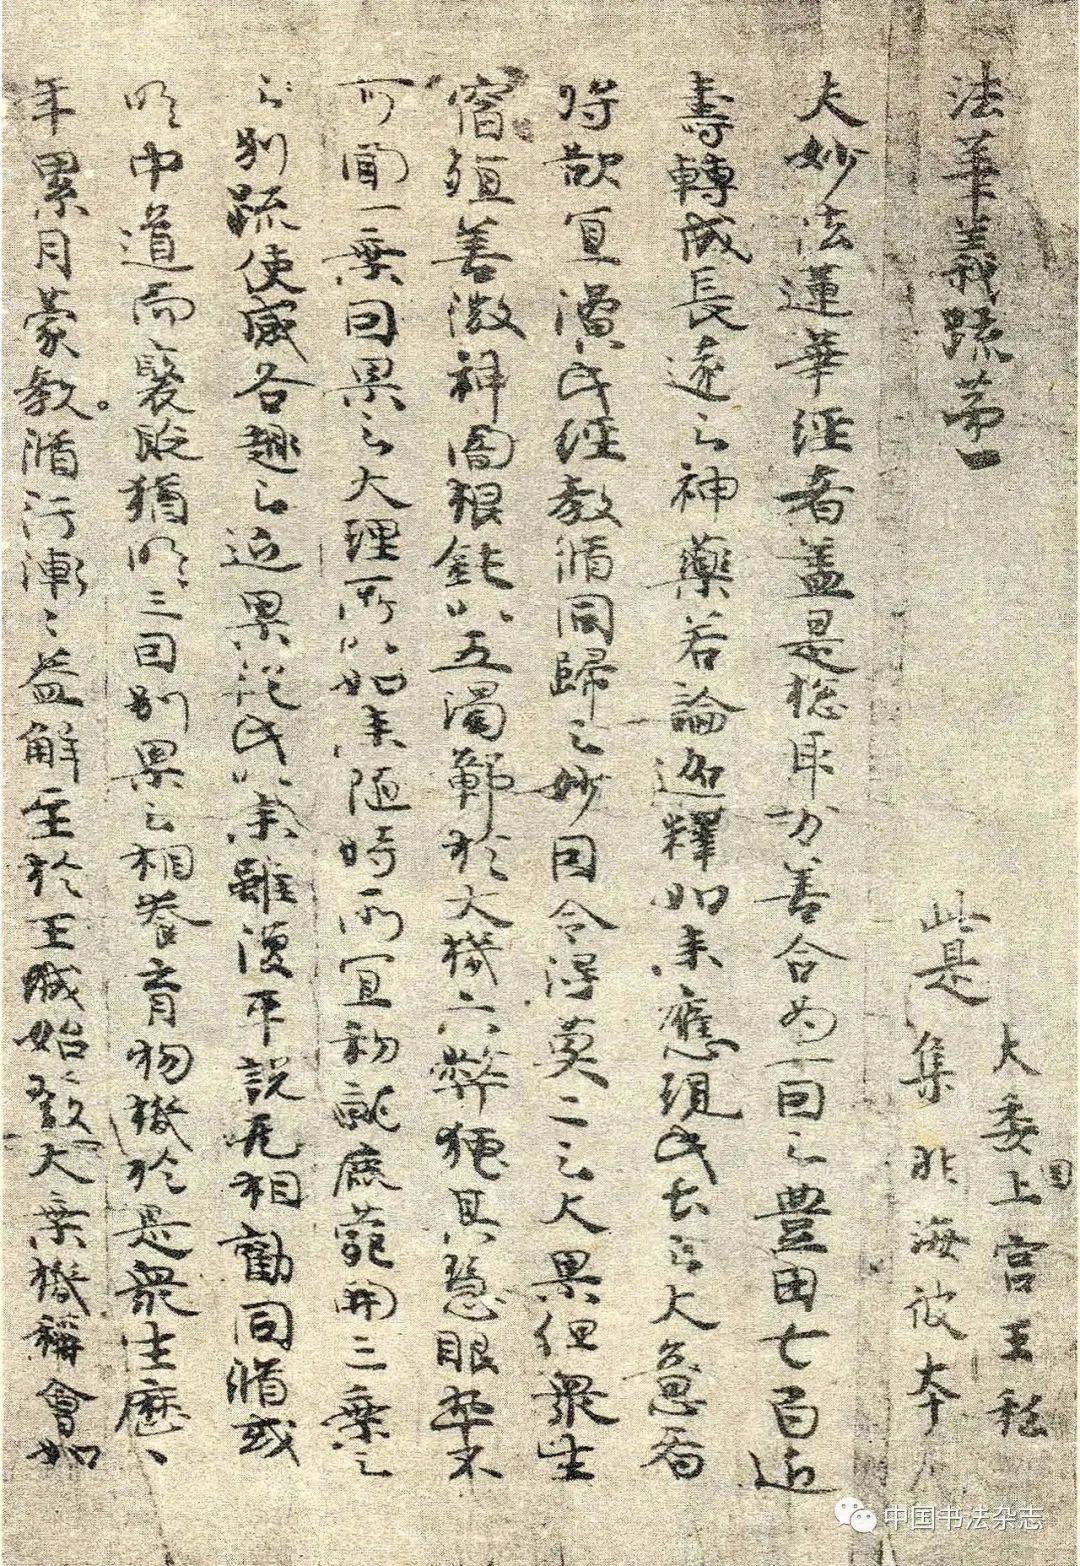 法華義疏第一
此是
大委上宮王私
集非海彼本
國
夫妙法蓮華經者蓋是惣取万善合為一因之豊田七百近
壽轉成長遠之神藥若論迦釋如来應現此土之大意者
将欲宜演此經教脩同歸之妙因令得莫二之大果但衆生
宿殖善微神闇根鈍以五濁鄣於大機六弊掩其慧眼卒不
可聞一乗因果之大理所以如来随時所宜初就鹿菀開三乗之
之別疏使感各趣之近果従此以来雖復平說无相勸同脩或
明中道而襃貶猶明三因別果之相養育物機於是衆生歷〻
年累月蒙教脩行漸〻益解至於王城始發大乗機稱會如
中国书法杂志